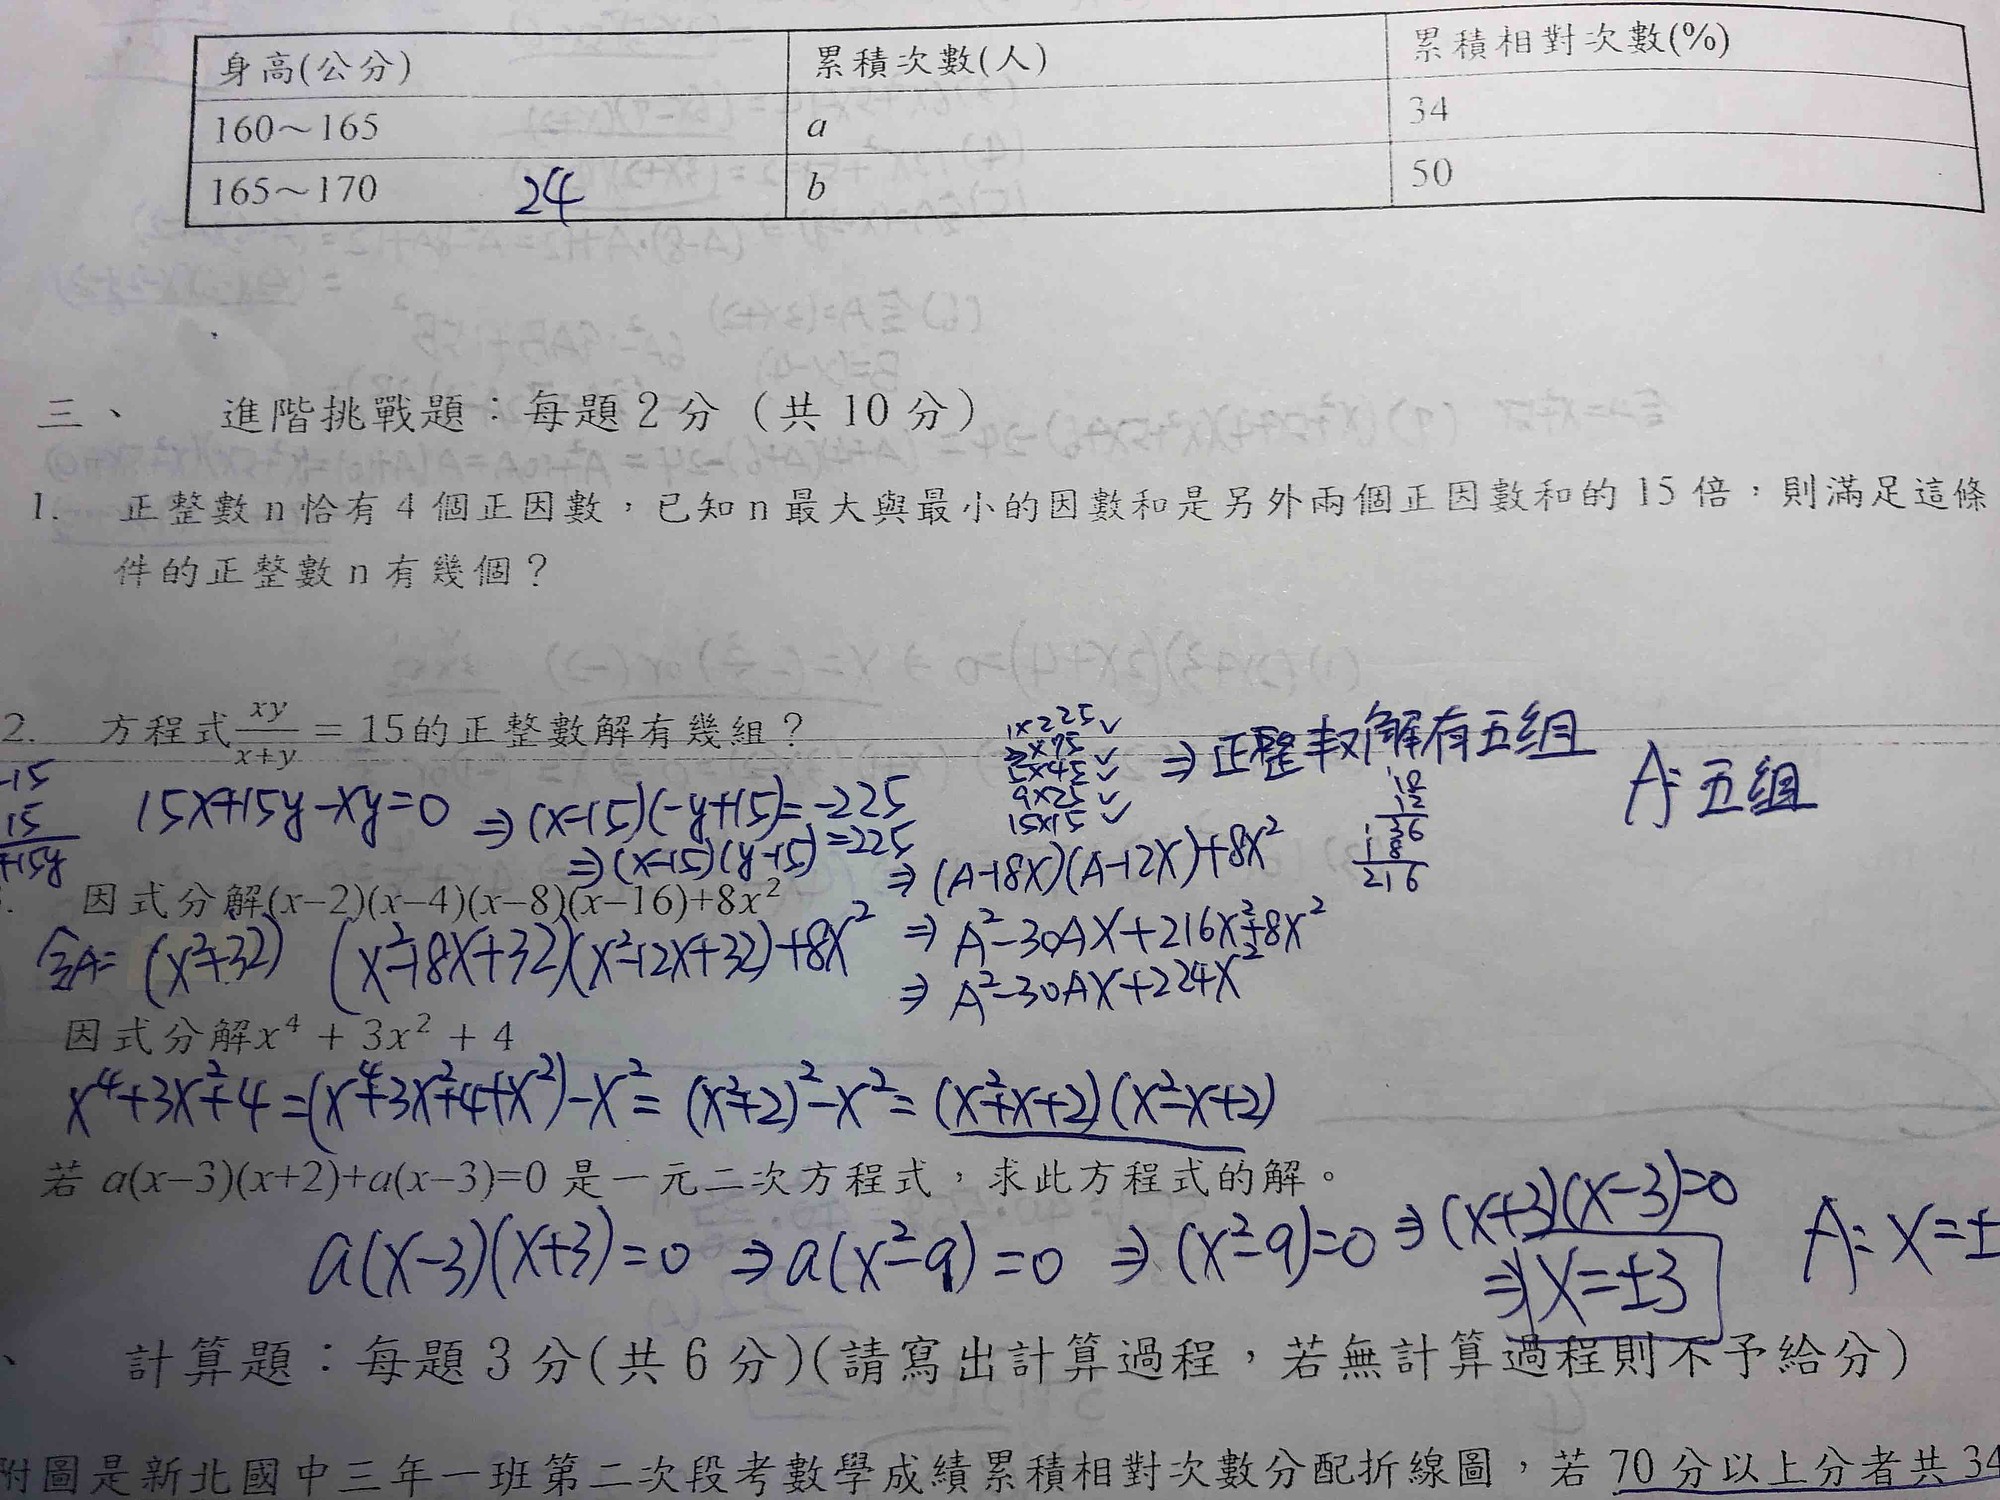 身高(公分) 累積次數(人) 累積相對次數(%)
160～165 a 34
165～170 24 b 50
三、 進階挑戰題：每題2分（共10分）
1. 正整數n恰有4個正因數，已知n最大與最小的因數和是另外兩個正因數和的15倍，則滿足這條
件的正整數n有幾個？
2. 方程式xy/(x+y) = 15的正整數解有幾組？
1×225✓
3×75✓
5×45✓
9×25✓
15×15✓
⇒正整數解有五組
A=五組
-15
15
+15y
15x+15y-xy=0 ⇒(x-15)(-y+15)=-225
⇒(x-15)(y-15)=225
18
12
36
18
216
因式分解(x-2)(x-4)(x-8)(x-16)+8x²
⇒(A-18x)(A-12x)+8x²
令A=(x²+32) (x²-18x+32)(x²-12x+32)+8x²
⇒A²-30Ax+216x²+8x²
⇒A²-30Ax+224x²
因式分解x⁴ + 3x² + 4
x⁴+3x²+4=(x⁴+3x²+4+x²)-x²=(x²+2)²-x²=(x²+x+2)(x²-x+2)
若 a(x-3)(x+2)+a(x-3)=0 是一元二次方程式，求此方程式的解。
a(x-3)(x+3)=0 ⇒a(x²-9)=0 ⇒(x²-9)=0 ⇒(x+3)(x-3)=0
⇒x=±3
A=x=±
、 計算題：每題3分(共6分)(請寫出計算過程，若無計算過程則不予給分)
附圖是新北國中三年一班第二次段考數學成績累積相對次數分配折線圖，若70分以上分者共34